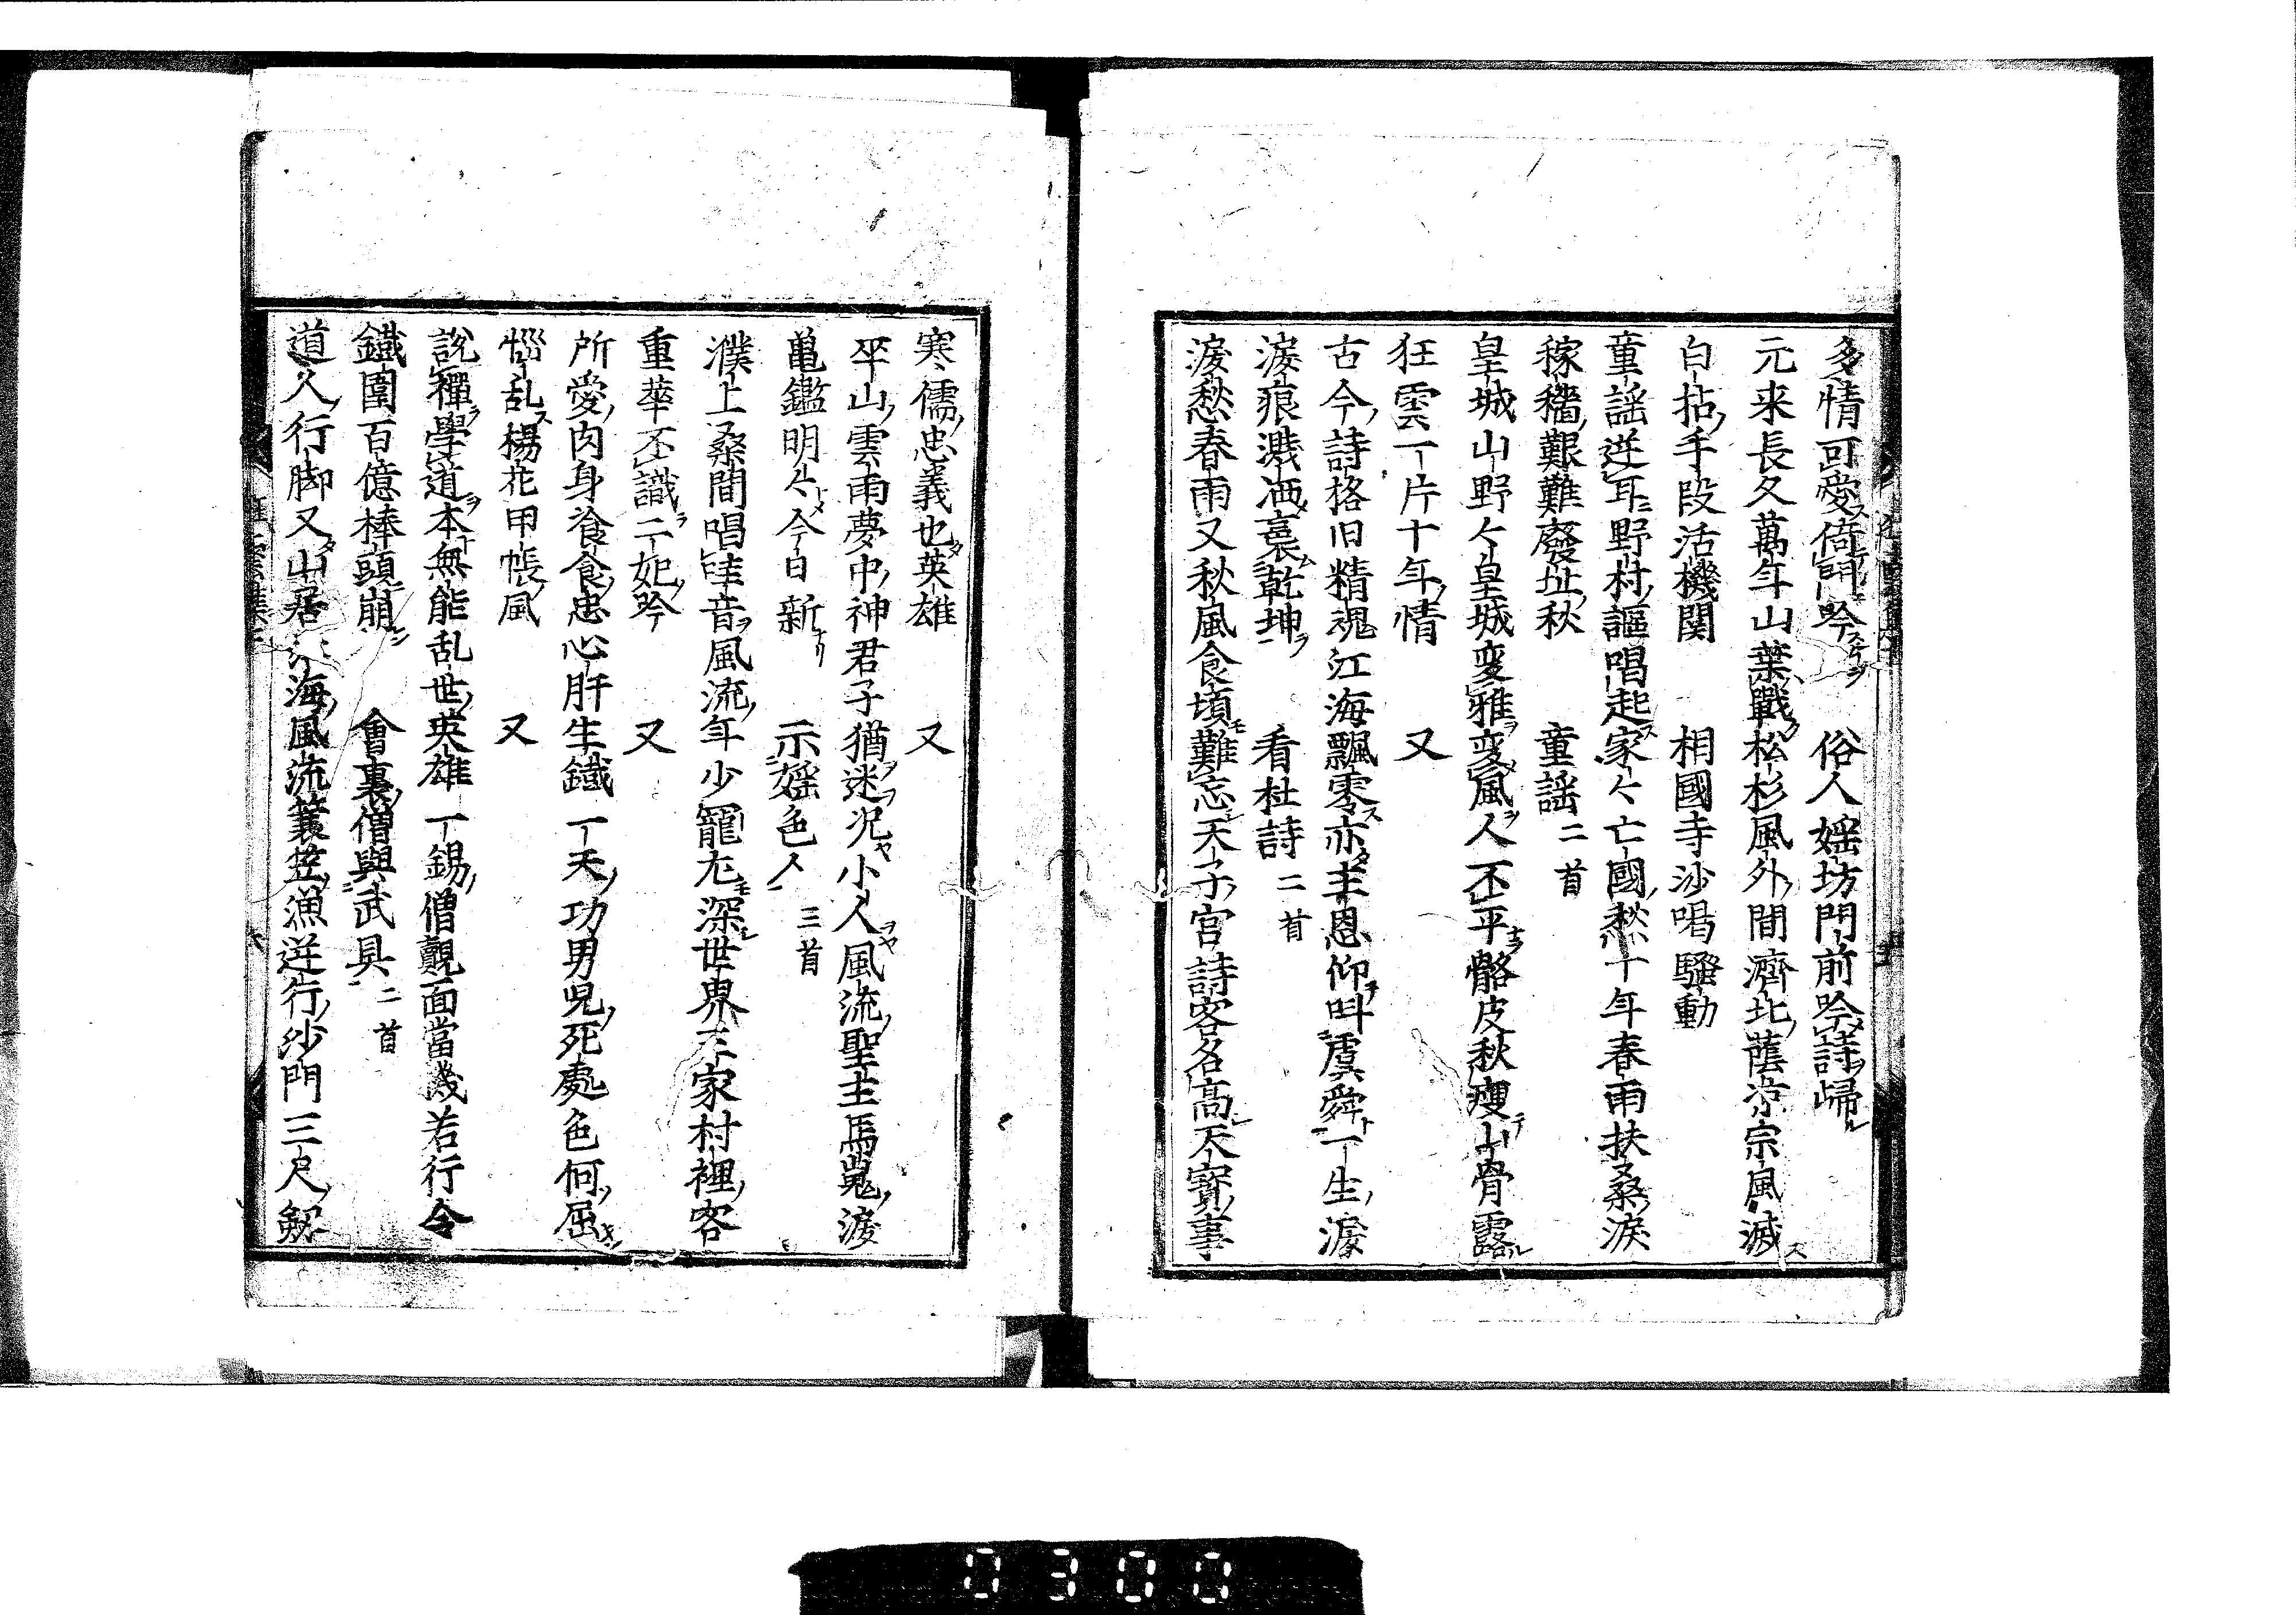 多情可愛倚門吟　俗人婬坊門前吟詩帰
元来長久萬年山葉戦松杉風外間濟北蔭凉宗風滅
白拈手段活機関　相國寺沙喝騒動
童謡逆耳野村謳唱起家々亡國愁十年春雨扶桑淚
稼穡艱難廢址秋　童謡二首
皇城山野々皇城変雅変風人不平骼皮秋瘦山骨露
狂雲一片十年情　又
古今詩格旧精魂江海飄零亦主恩仰叫虞舜一生淚
淚痕濺洒裏乾坤　看杜詩二首
淚愁春雨又秋風食頃難忘天子宮詩客名高天寳事
寒儒忠義也英雄　又
平山雲雨夢中神君子猶迷况小人風流聖主馬嵬淚
亀鑑明々今日新　示婬色人三首
濮上桑間唱哇音風流年少寵尤深世界三家村裡客
重華不識二妃吟　又
所愛肉身飡食忠心肝生鐵一天功男児死處色何屈
惱乱楊花甲帳風　又
説禪學道本無能乱世英雄一錫僧覿面當幾若行令
鐵圍百億棒頭崩　會裏僧與武具二首
道人行脚又山居海風流簑笠漁逆行沙門三尺劔
0300